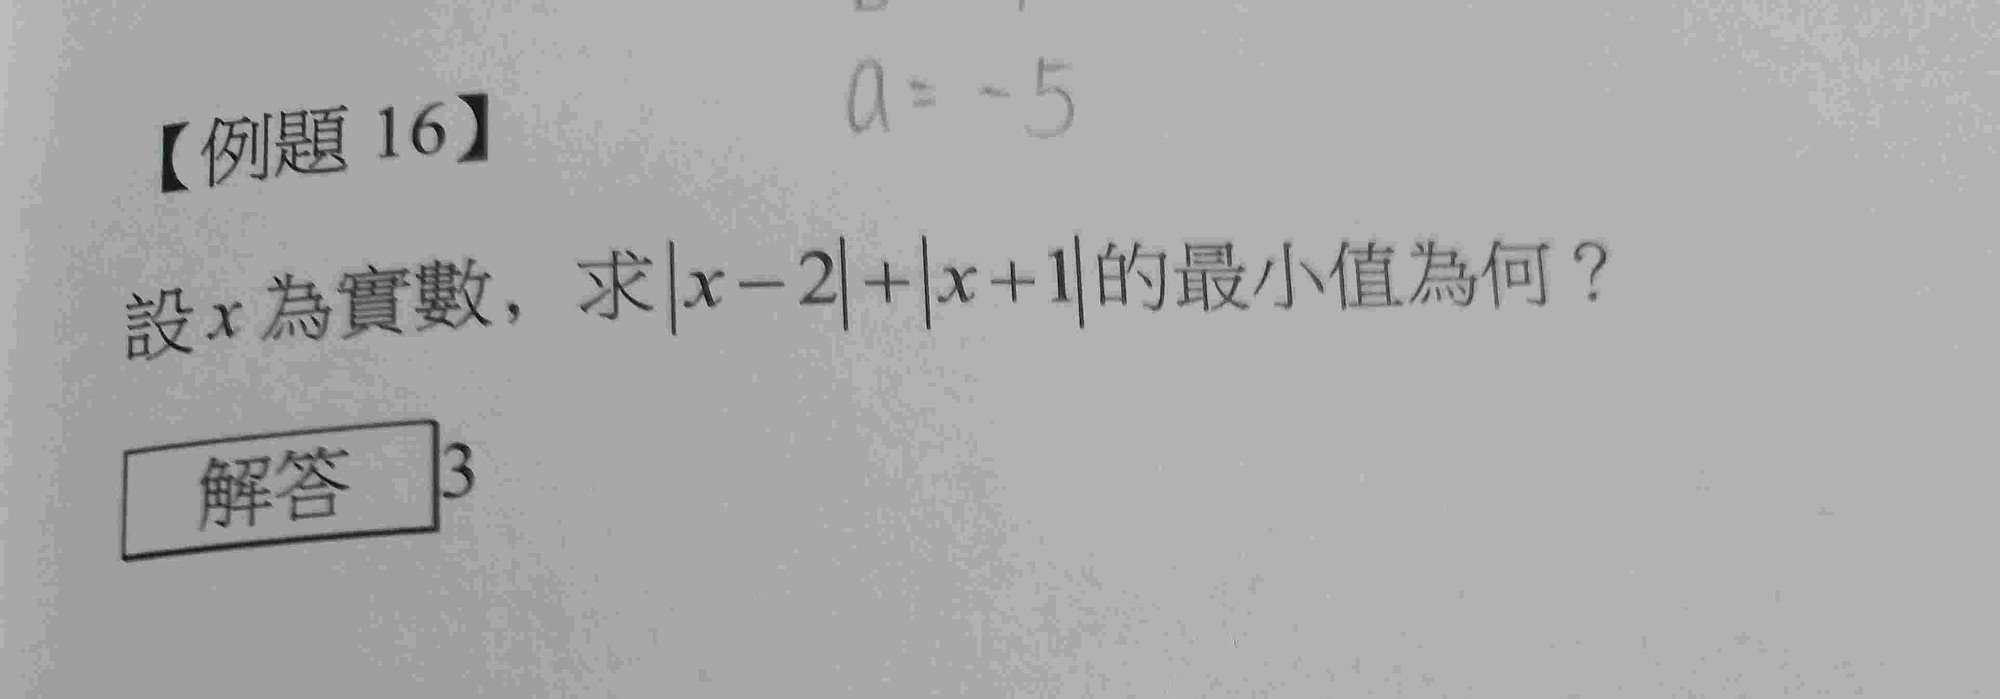 a = -5
【例題 16】
設 x 為實數，求|x-2|+|x+1|的最小值為何？
解答 3